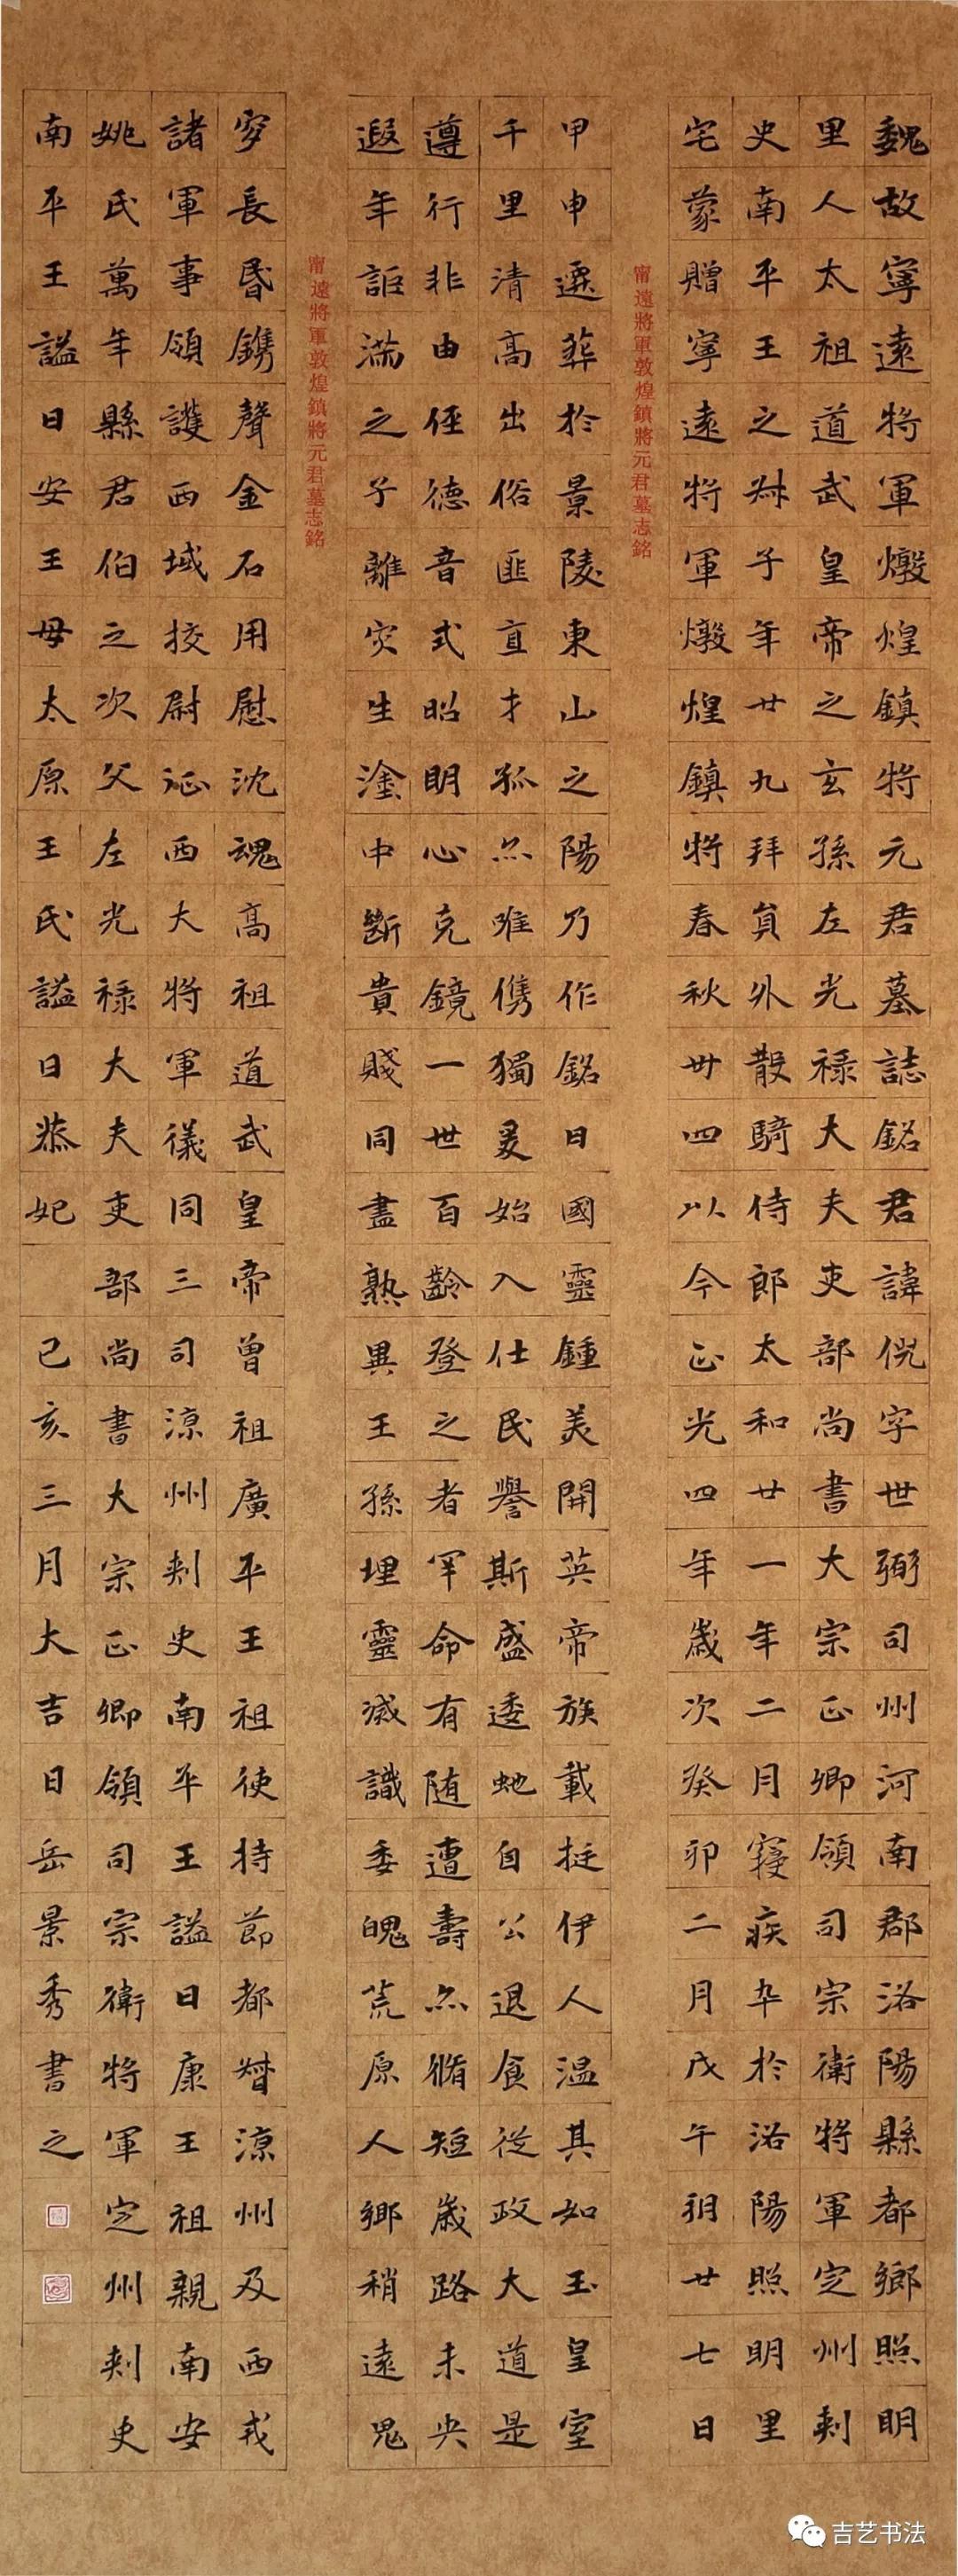 魏故寧遠將軍燉煌鎮將元君墓誌銘君諱倪字世弼司州河南郡洛陽縣都鄉照明
里人太祖道武皇帝之玄孫左光祿大夫吏部尚書大宗正卿領司宗衛將軍定州刺
史南平王之叔子年廿九拜員外散騎侍郎太和廿一年二月寢疾卒於洛陽照明里
宅蒙贈寧遠將軍燉煌鎮將春秋卅四以今正光四年歲次癸卯二月戊午朔廿七日
甯遠將軍敦煌鎮將元君墓志銘
甲申遷葬於景陵東山之陽乃作銘曰國靈鍾美開英帝族載挺伊人温其如玉皇室
千里清高出俗匪直才孤亦唯儁獨爰始入仕民譽斯盛逶虵自公退食從政大道是
遵行非由侄德音式昭明心克鏡一世百齡登之者罕命有随遭壽亦脩短歲路未央
遐年詎滿之子離灾生塗中斷貴賤同盡熟異王孫埋靈滅識委魄荒原人鄉稍遠鬼
甯遠將軍敦煌鎮將元君墓志銘
穸長昬鐫聲金石用慰沈魂高祖道武皇帝曾祖廣平王祖使持節都督涼州及西戎
諸軍事領護西域挍尉征西大將軍儀同三司涼州刺史南平王謚曰康王祖親南安
姚氏萬年縣君伯之次父左光禄大夫吏部尚書大宗正卿領司宗衛將軍定州刺史
南平王謚曰安王母太原王氏謚曰恭妃 己亥三月大吉日岳景秀書之
吉艺书法